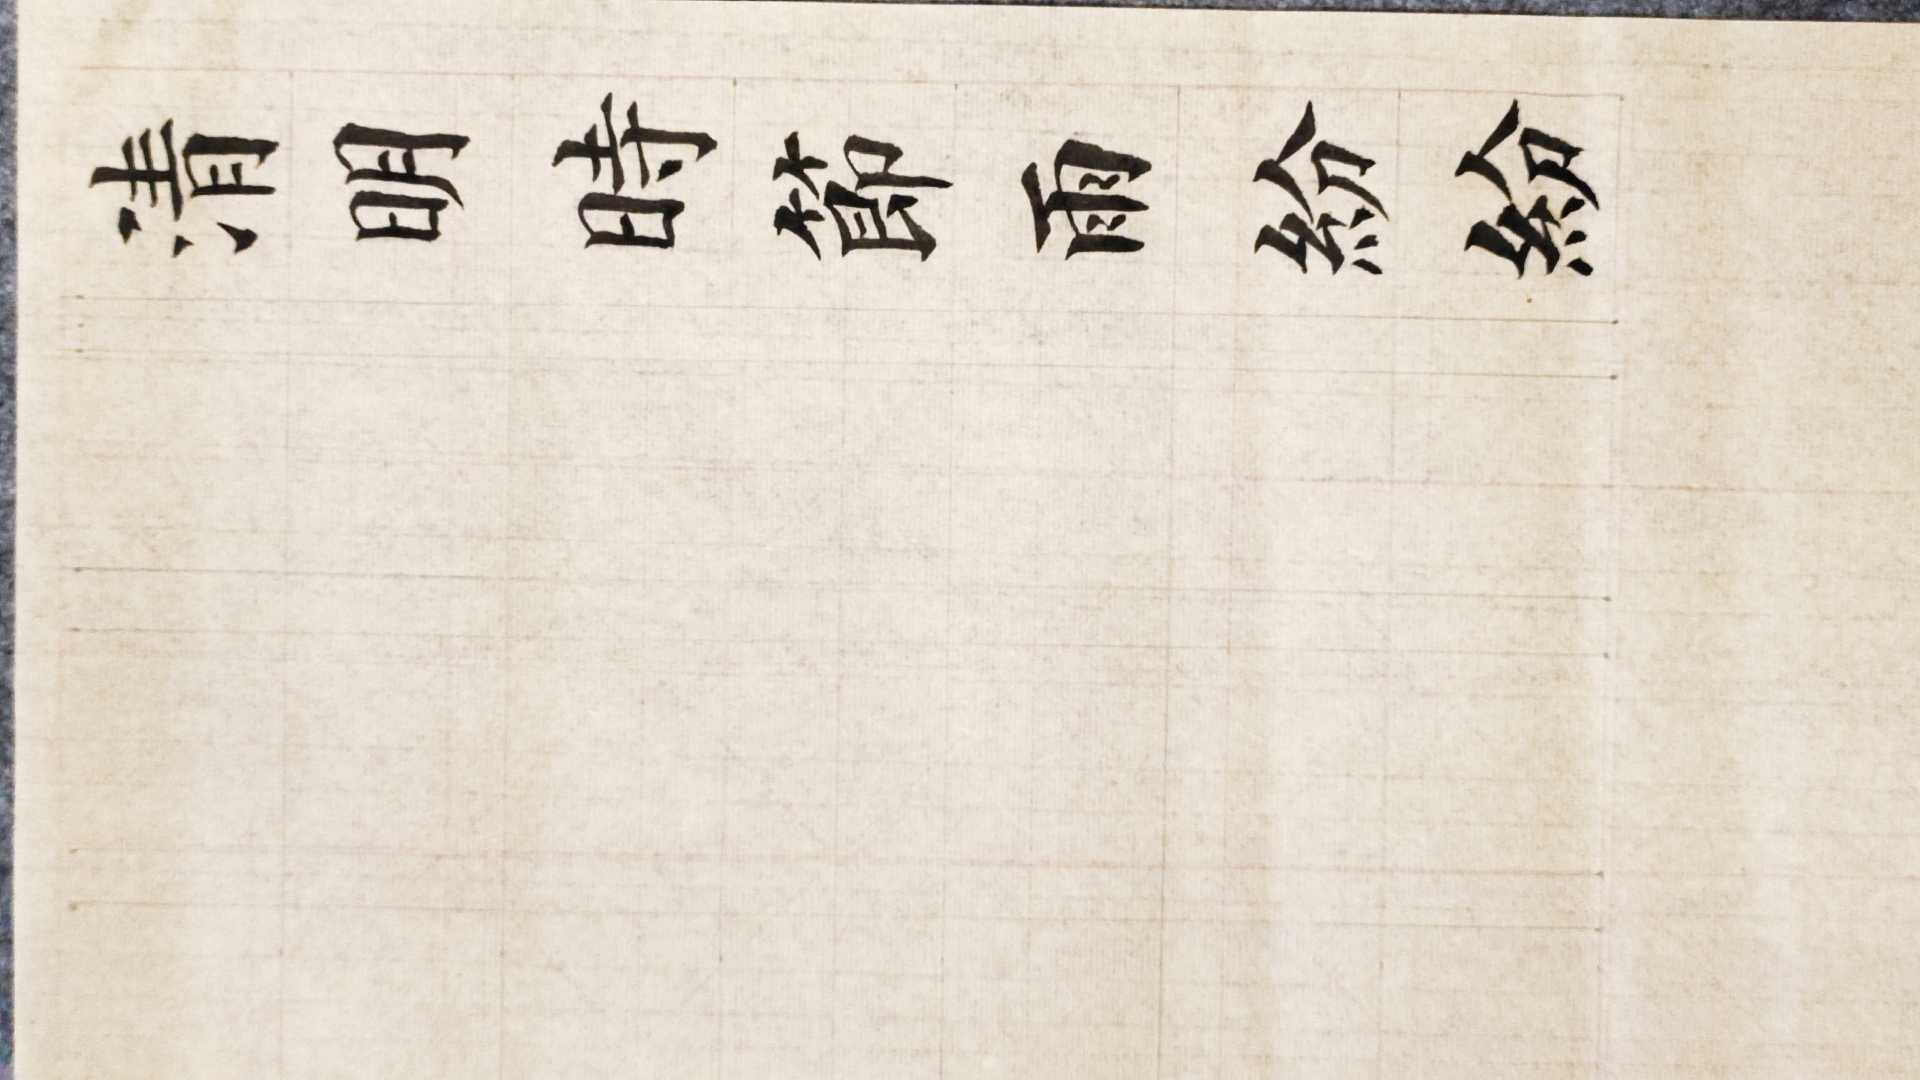 清明時節雨紛紛